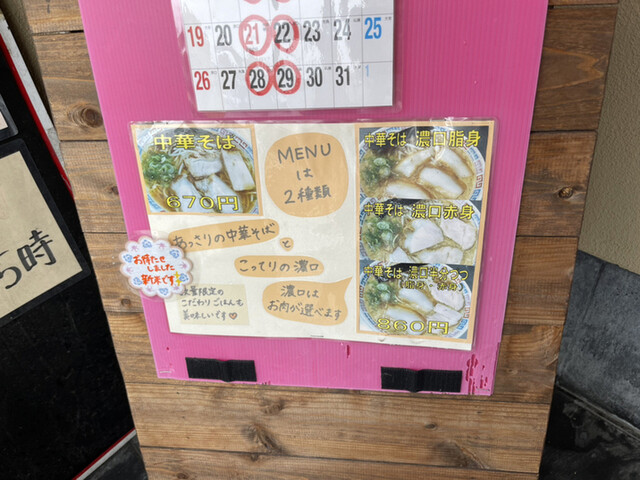 19 20 21 22 23 24 25
26 27 28 29 30 31 1
中華そば
670円
MENU
は
2種類
あっさりの中華そば
と
こってりの濃口
濃口は
お肉が選べます
お待たせ
しました
新米です!
数量限定の
こだわりごはんも
美味しいです♡
中華そば 濃口脂身
中華そば 濃口赤身
中華そば 濃口
860円
5時